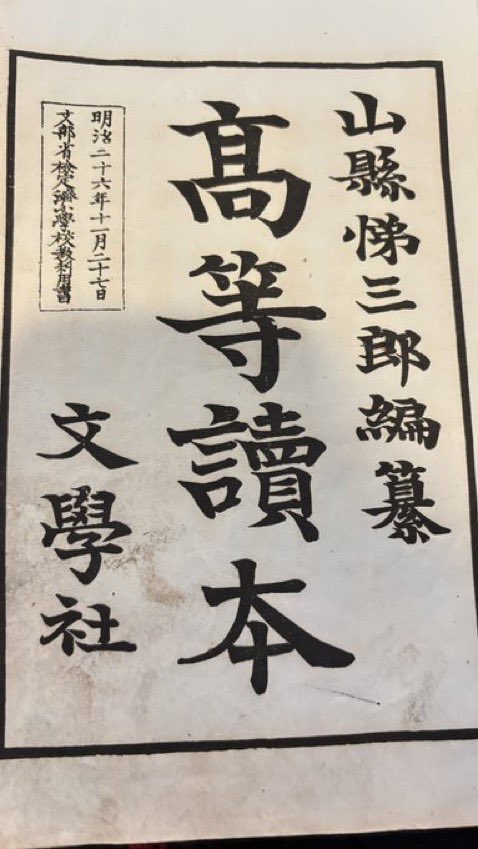 山縣悌三郎編纂
高等讀本
明治二十六年十一月二十七日
文部省檢定濟小學校敎科用書
文學社